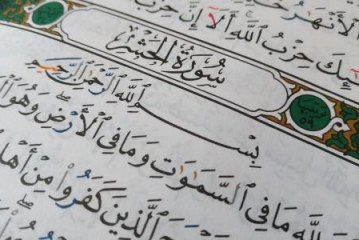 ٱلْأَنْهَٰرُ
حِزْبُ ٱللَّهِ أَلَآ إِنَّ حِزْبَ
سُورَةُ الحَشْرِ
بِسْمِ ٱللَّهِ ٱلرَّحْمَٰنِ ٱلرَّحِيمِ
لِلَّهِ مَا فِي ٱلسَّمَٰوَٰتِ وَمَا فِي ٱلْأَرْضِ وَهُوَ
ٱلَّذِينَ كَفَرُوا۟ مِنْ أَهْلِ